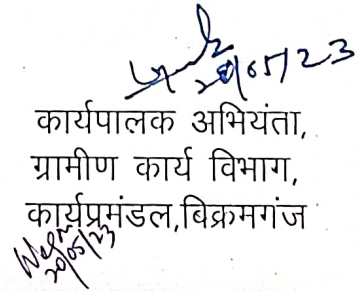 20/05/23
कार्यपालक अभियंता,
ग्रामीण कार्य विभाग,
कार्यप्रमंडल,बिक्रमगंज
20/05/23